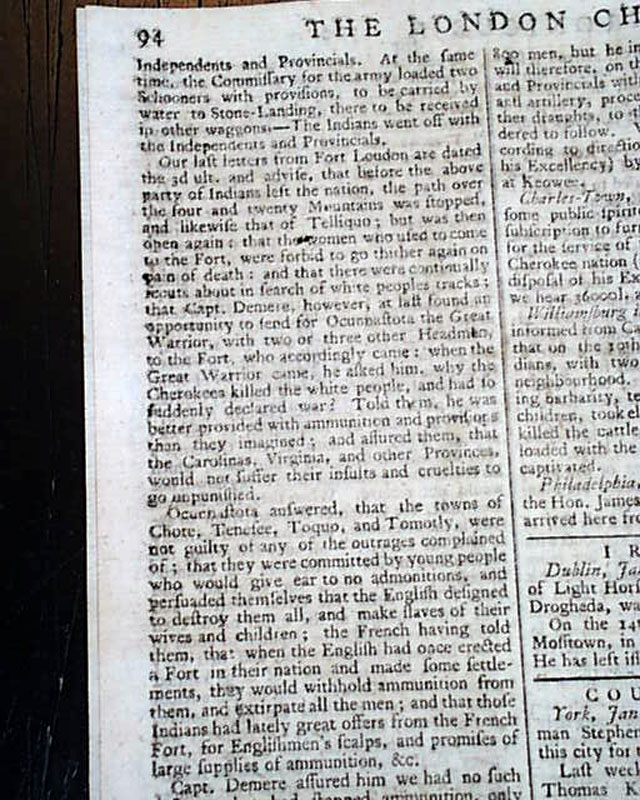 94
THE LONDON CH
Independents and Provincials. At the same
time, the Commiſſary for the army loaded two
Schooners with proviſions, to be carried by
water to Stone-Landing, there to be received
in other waggons.—The Indians went off with
the Independents and Provincials.
Our laſt letters from Fort Loudon are dated
the 3d ult. and adviſe, that before the above
party of Indians left the nation, the path over
the four and twenty Mountains was ſtopped,
and likewiſe that of Telliquo; but was then
open again: that the women who uſed to come
to the Fort, were forbid to go thither again on
pain of death: and that there were continually
ſcouts about in ſearch of white peoples tracks;
that Capt. Demere, however, at laſt found an
opportunity to ſend for Ocunnaſtota the Great
Warrior, with two or three other Headmen,
to the Fort, who accordingly came: when the
Great Warrior came, he aſked him, why the
Cherokees killed the white people, and had ſo
ſuddenly declared war? Told them, he was
better provided with ammunition and proviſions
than they imagined; and aſſured them, that
the Carolinas, Virginia, and other Provinces,
would not ſuffer their inſults and cruelties to
go unpuniſhed.
Ocunnaſtota anſwered, that the towns of
Chote, Teneſee, Toquo, and Tomotly, were
not guilty of any of the outrages complained
of; that they were committed by young people
who would give ear to no admonitions, and
perſuaded themſelves that the Engliſh deſigned
to deſtroy them all, and make ſlaves of their
wives and children; the French having told
them, that when the Engliſh had once erected
a Fort in their nation and made ſome ſettle-
ments, they would withhold ammunition from
them, and extirpate all the men; and that thoſe
Indians had lately great offers from the French
Fort, for Engliſhmen's ſcalps, and promiſes of
large ſupplies of ammunition, &c.
Capt. Demere aſſured him we had no ſuch
ſtopped ammunition, only
800 men, but he in
will therefore, on th
and Provincials with
and artillery, proc
ther draughts, to
dered to follow.
cording to directio
his Excellency) by
at Keowee.
Charles-Town,
ſome public ſpiri
ſubſcription to fur
for the ſervice of
Cherokee nation (
diſpoſal of his Ex
we hear 36000l.
Williamſburg
informed from Ca
that on the 19th
dians, with two
neighbourhood.
ing barbarity, te
children, took el
killed the cattle
loaded with the
captivated.
Philadelphia,
the Hon. James
arrived here fro
I R
Dublin, Ja
of Light Hor
Drogheda, wa
On the 14t
Moſſtown, in
He has left iſ
C O U
York, Jan
man Stephen
this city for
Laſt wee
Thomas K